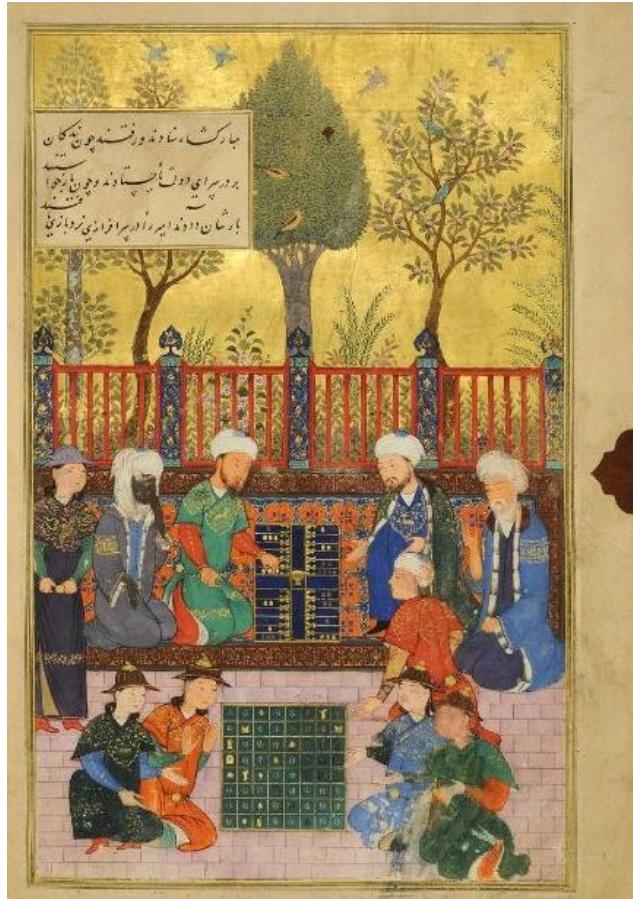 ستادند و رفتند چون بندگان
بر در سرای دولت بایستادند و چون بار خواستند
بارشان دادند امیر را در سرافرازی نرد بازی یافتند